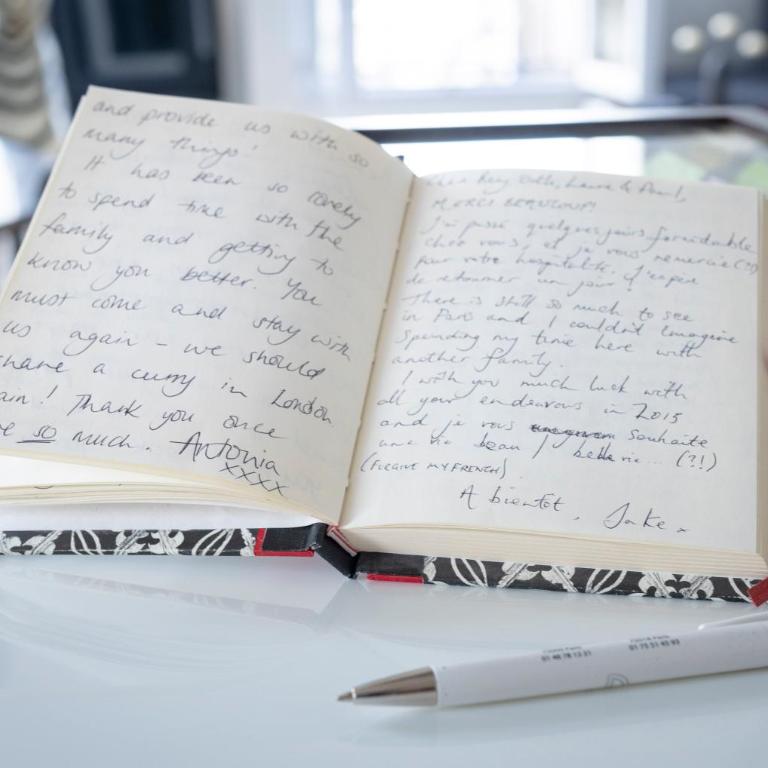 and provide us with so
many things!
It has been so lovely
to spend time with the
family and getting to
know you better. You
must come and stay with
us again - we should
have a curry in London
ain! Thank you once
so much. Antonia
xxxx
Laure & Paul,
MERCI BEAUCOUP!
J'ai passé quelques jours formidable
chez vous, et je vous remercie (?)
pour votre hospitalité. J'espère
de retourner un jour!
There is still so much to see
in Paris and I couldn't imagine
spending my time here with
another family.
I wish you much luck with
all your endeavours in 2015
and je vous souhaite
une vie beau / belle vie... (?!)
(FORGIVE MY FRENCH)
A bientôt, Jake x